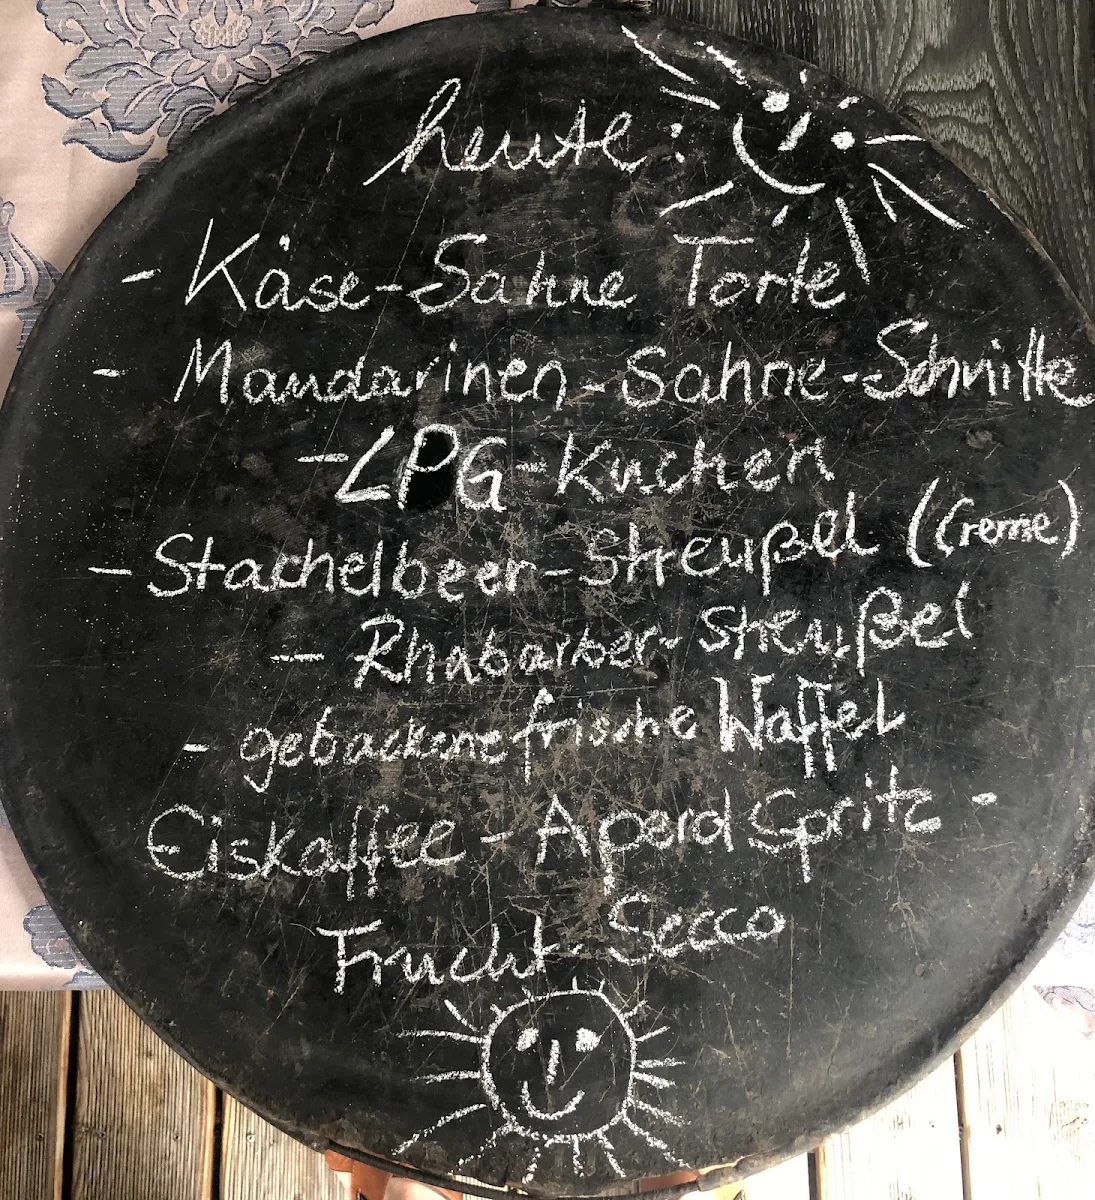 heute:
- Käse-Sahne Torte
- Mandarinen-Sahne-Schnitte
- LPG-Kuchen
- Stachelbeer-Streußel (Creme)
- Rhabarber-Streußel
- gebackene frische Waffel
Eiskaffee - Aperol Spritz -
Frucht-Secco